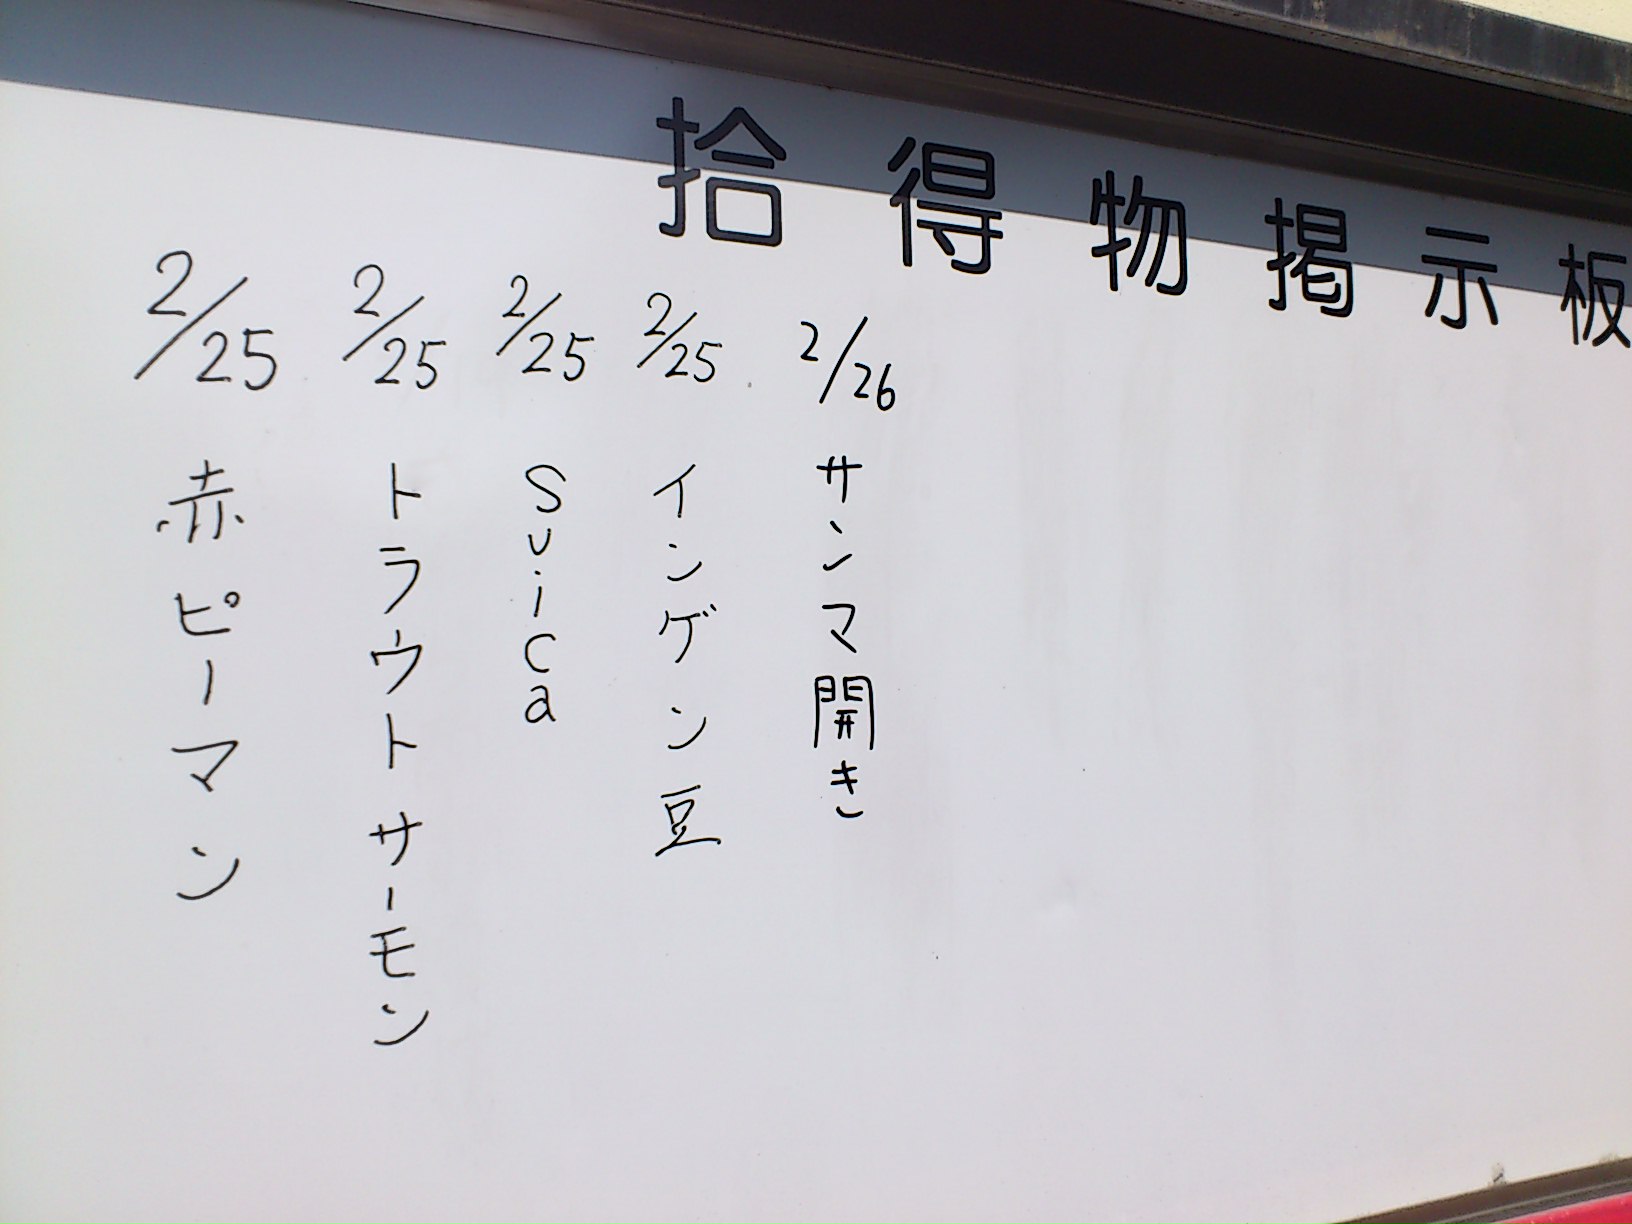 拾得物掲示板
2/25 赤ピーマン
2/25 トラウトサーモン
2/25 Suica
2/25 インゲン豆
2/26 サンマ開き